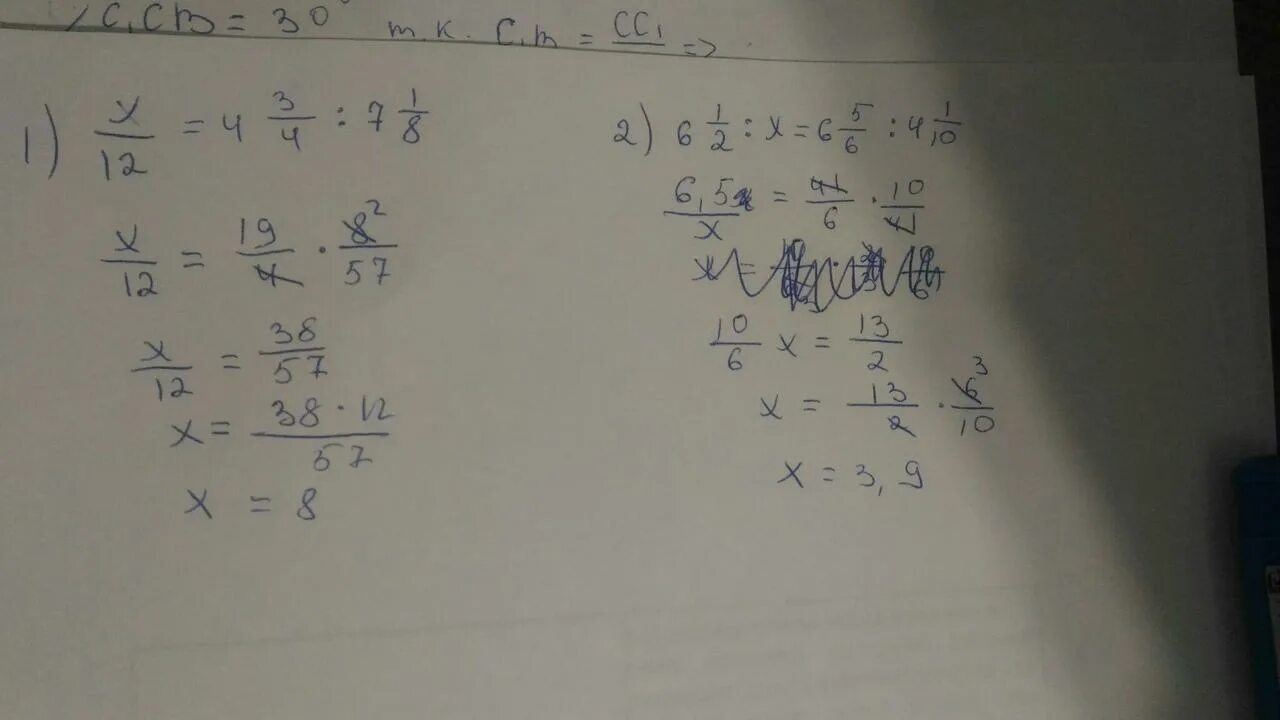 ∠C₁CB = 30° т.к. C₁B = CC₁ =>
1) x/12 = 4 3/4 : 7 1/8
x/12 = 19/4 · 8²/57
x/12 = 38/57
x = 38 · 12/57
x = 8
2) 6 1/2 : x = 6 5/6 : 4 1/10
6,5/x = 41/6 · 10/41
10/6 x = 13/2
x = 13/2 · 6³/10
x = 3,9